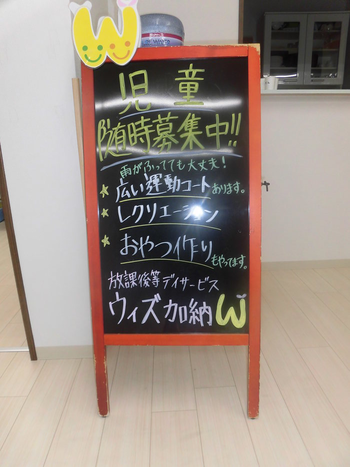 児童
随時募集中!!
雨がふってても大丈夫!
★広い運動コートあります。
★レクリエーション
★おやつ作りもやってます。
放課後等デイサービス
ウィズ加納W